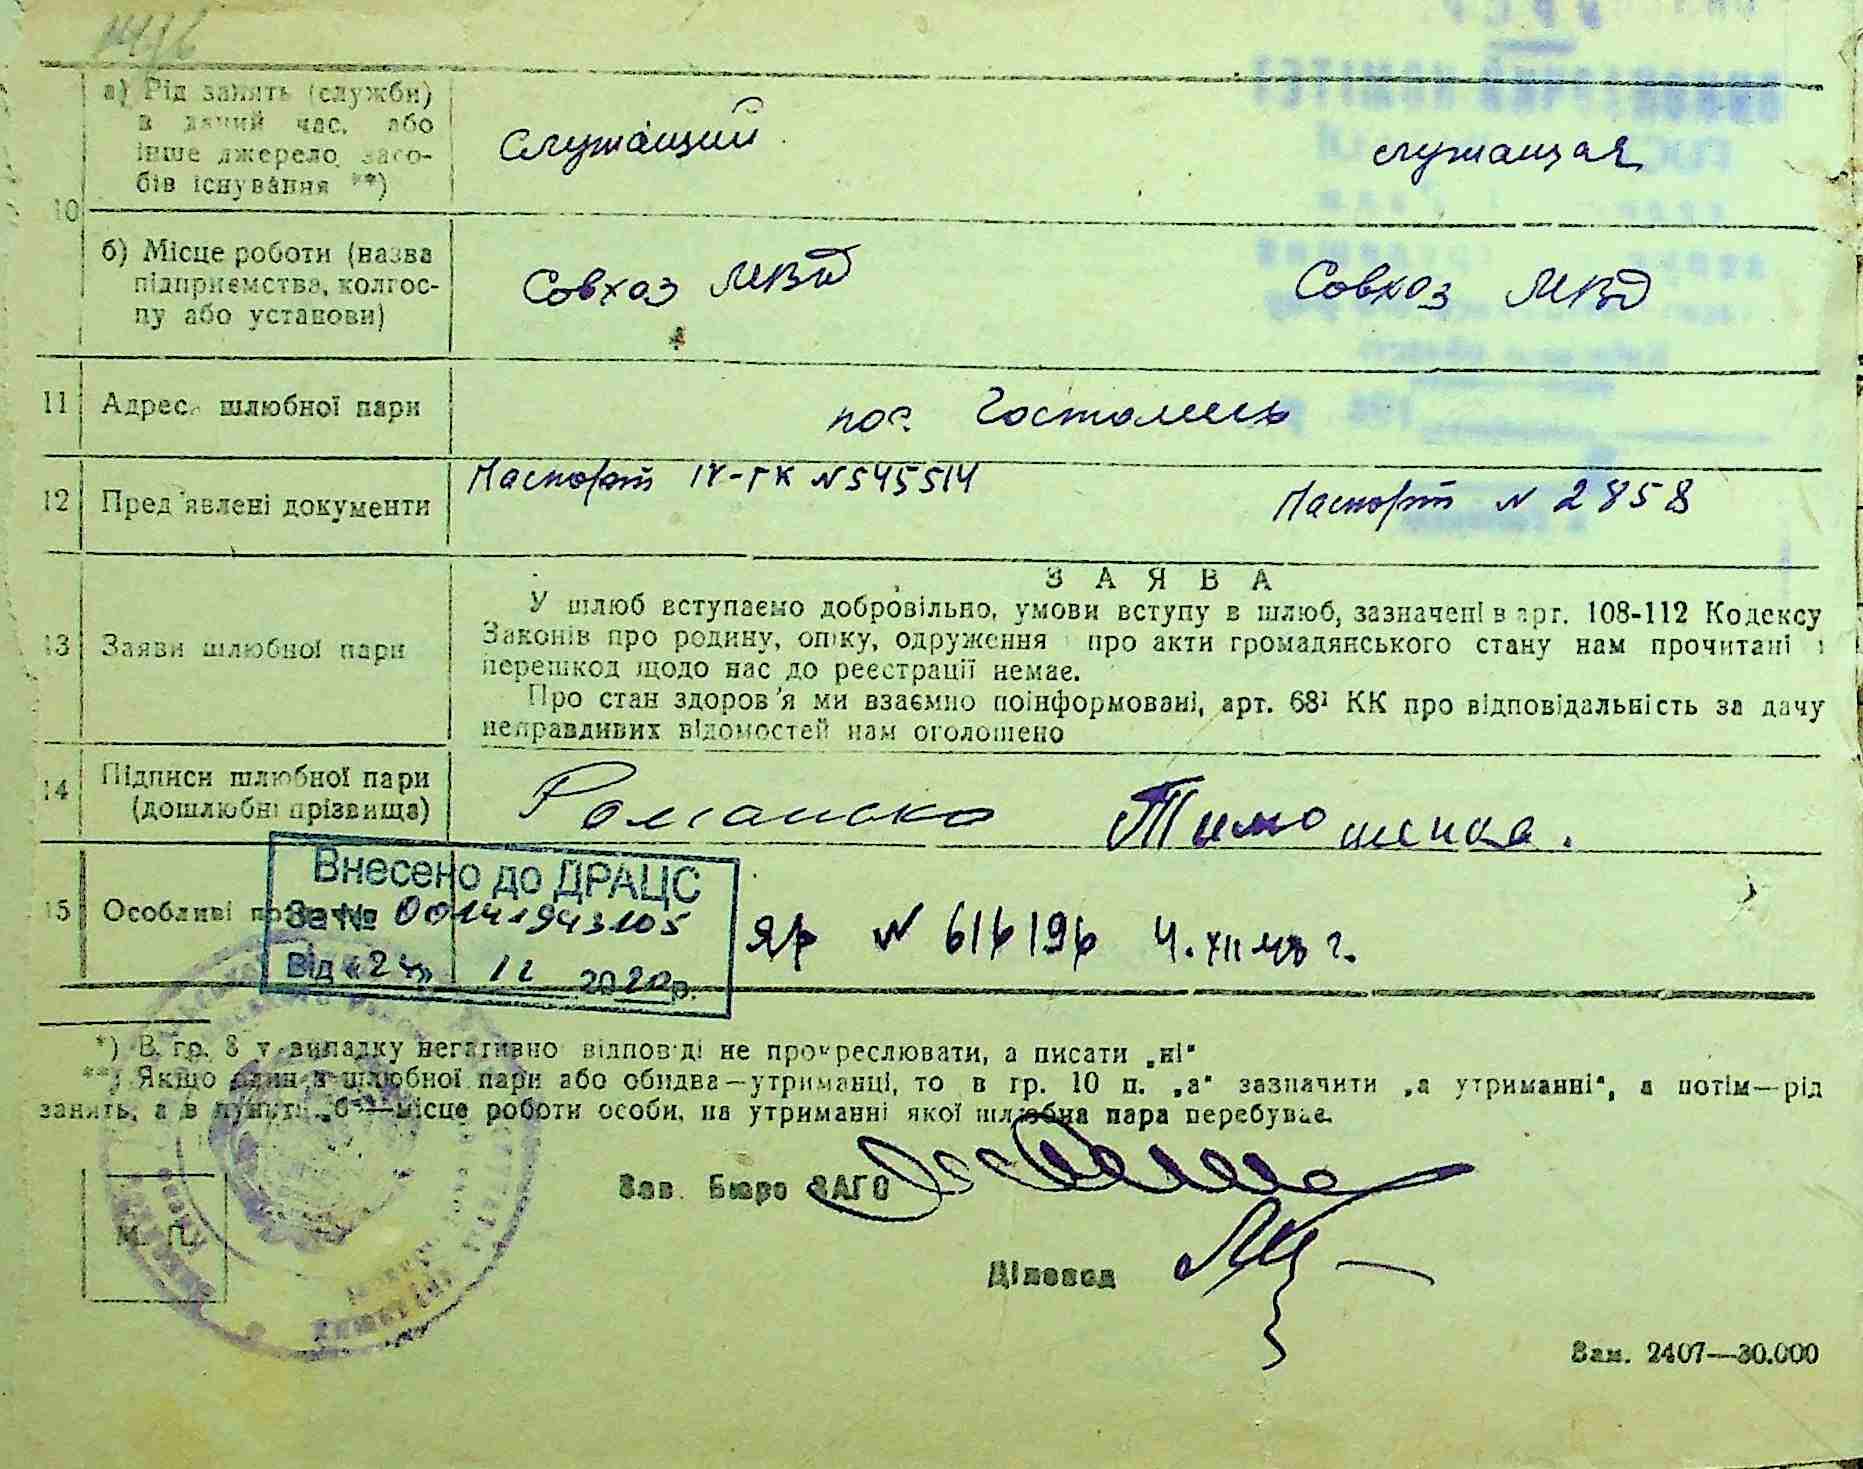 а) Рід занять (служби)
в даний час, або
інше джерело засо-
бів існування **)
Служащий
служащая
10
б) Місце роботи (назва
підприємства, колгос-
пу або установи)
Совхоз МВД
Совхоз МВД
11 Адреса шлюбної пари
пос. Гостомель
12 Пред'явлені документи
Паспорт IV-ГК N 545514
Паспорт N 2858
ЗАЯВА
13 Заяви шлюбної пари
У шлюб вступаємо добровільно, умови вступу в шлюб, зазначені в арт. 108-112 Кодексу
Законів про родину, опіку, одруження і про акти громадянського стану нам прочитані і
перешкод щодо нас до реєстрації немає.
Про стан здоров'я ми взаємно поінформовані, арт. 68¹ КК про відповідальність за дачу
неправдивих відомостей нам оголошено
14 Підписи шлюбної пари
(дошлюбні прізвища)
Романско Тимошенко.
15 Особливі
Внесено до ДРАЦС
За № 00141943105
Від «24» 12 2020р.
ЯР N 616196 4.XII 48 г.
*) В гр. 8 у випадку негативної відповіді не прокреслювати, а писати „ні"
**) Якщо один з шлюбної пари або обидва—утриманці, то в гр. 10 п. „а" зазначити „а утриманні", а потім—рід
занять, а в пункті „б"—місце роботи особи, на утриманні якої шлюбна пара перебуває.
Зав. Бюро ЗАГС
М. П.
Діловод
Зам. 2407—30.000